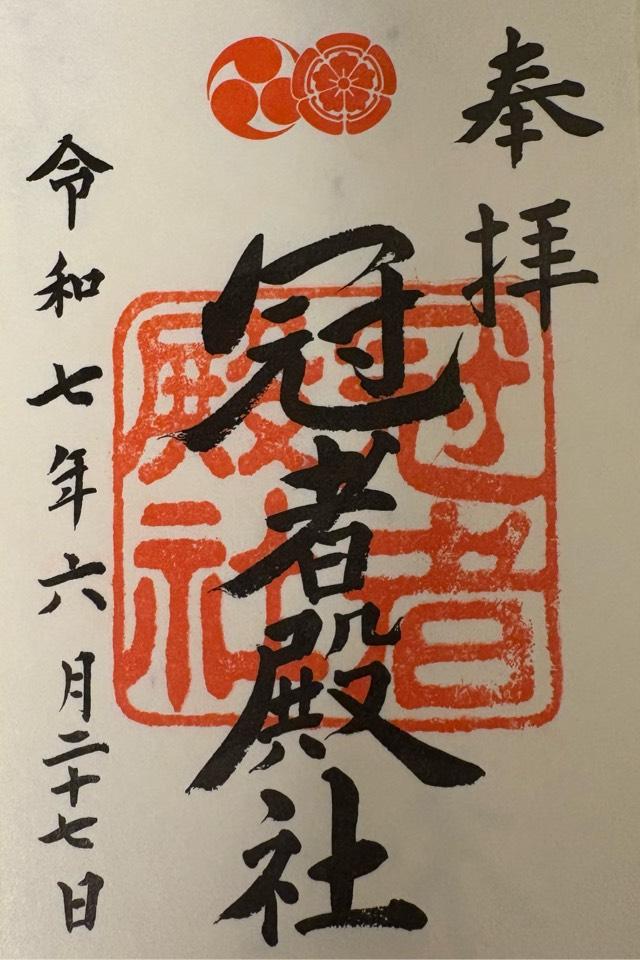 奉拝
冠者殿社
冠者殿社
令和七年六月二十七日